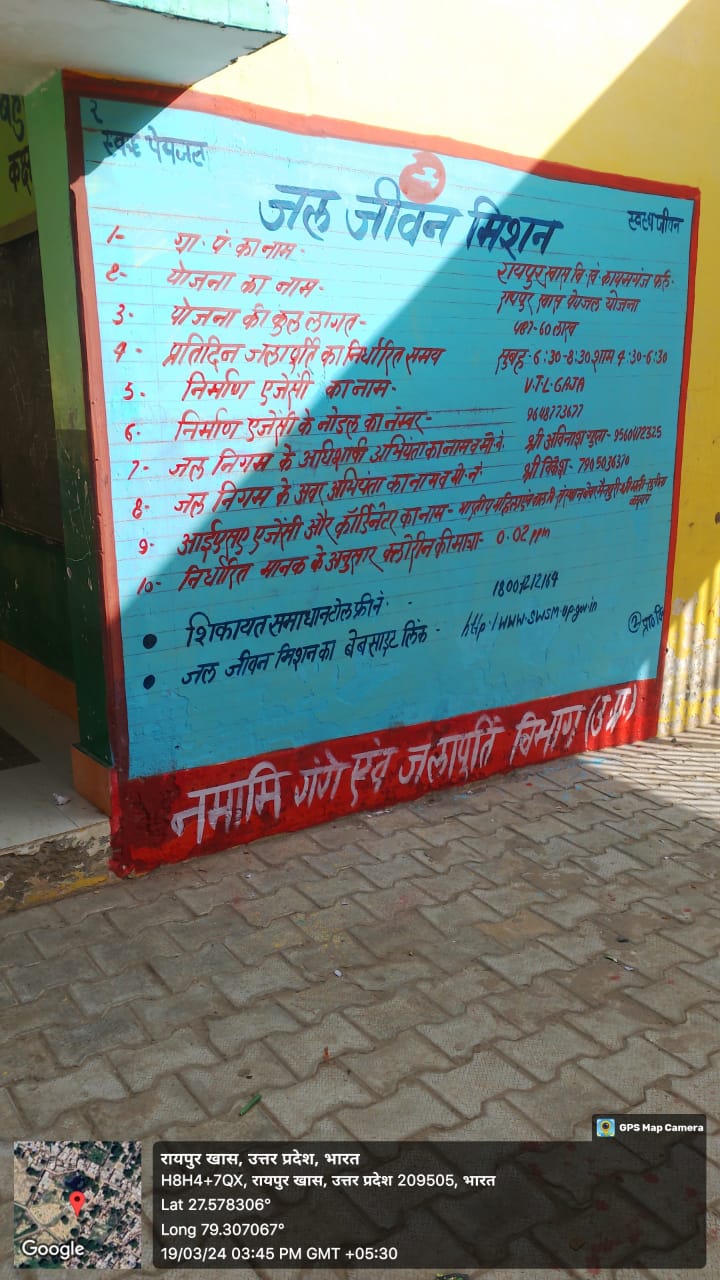 २
स्वच्छ पेयजल
जल जीवन मिशन
स्वस्थ जीवन
1- ग्रा. पं. का नाम - रायपुर खास वि. खं. कायमगंज फर्रु.
2- योजना का नाम - रायपुर खास पेयजल योजना
3. योजना की कुल लागत - 487-60 लाख
4- प्रतिदिन जलापूर्ति का निर्धारित समय सुबह- 6:30-8:30 शाम 4:30-6:30
5. निर्माण एजेंसी का नाम - V.T.L-GAJA
6. निर्माण एजेंसी के नोडल का नम्बर - 9648773677
7- जल निगम के अधिशाषी अभियंता का नाम व मो. नं. श्री अविनाश गुप्ता - 9560472325
8- जल निगम के अवर अभियंता का नाम व मो. नं. श्री विवेक - 7905036370
9- आईएसए एजेंसी और कॉर्डिनेटर का नाम -
10- निर्धारित मानक के अनुसार क्लोरीन की मात्रा - 0.02 ppm
शिकायत समाधान टोल फ्री नं - 18001212164
जल जीवन मिशन का बेबसाइट लिंक - http./www.swsm-up.gov.in
नमामि गंगे एंव जलापूर्ति विभाग (उ.प्र.)
GPS Map Camera
रायपुर खास, उत्तर प्रदेश, भारत
H8H4+7QX, रायपुर खास, उत्तर प्रदेश 209505, भारत
Lat 27.578306°
Long 79.307067°
19/03/24 03:45 PM GMT +05:30
Google